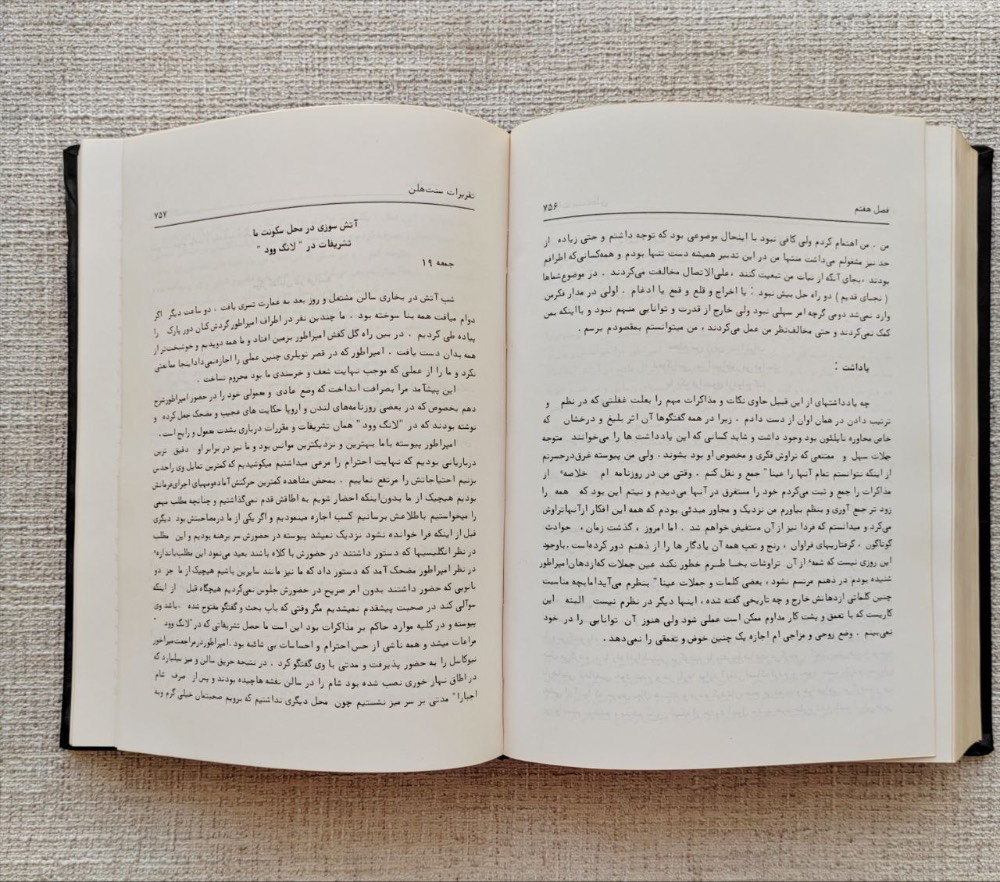 فصل هفتم
۷۵۶
من . من اهتمام کردم ولی کافی نبود با اینحال موضوعی بود که توجه داشتم و حتی زیاده از
حد نیز مشغولم می‌داشت منتها من در این تدبیر همیشه دست تنها بودم و همه‌کسانی‌که اطرافم
بودند ، بجای آنکه از نیات من تبعیت کنند ، علی‌الاتصال مخالفت می‌کردند . در موضوع‌شماها
( نجبای قدیم ) دو راه حل بیش نبود : یا اخراج و قلع و قمع یا ادغام . اولی در مدار فکرمن
وارد نمی‌شد دومی گرچه امر سهلی نبود ولی خارج از قدرت و توانایی منهم نبود و بااینکه بمن
کمک نمی‌کردند و حتی مخالف‌نظر من عمل می‌کردند ، من میتوانستم بمقصودم برسم .
یاداشت :
چه یادداشتهای از این قبیل حاوی نکات و مذاکرات مهم را بعلت غفلتی که در نظم و
ترتیب دادن در همان اوان از دست دادم . زیرا در همه گفتگوها آن اثر بلیغ و درخشان که
خاص محاوره ناپلئون بود وجود داشت و شاید کسانی که این یادداشت ها را می‌خوانند متوجه
جلات سهل و مغتنمی که تراوش فکری و مخصوص او بود بشوند . ولی من پیوسته غرق‌درحسرتم
از اینکه نتوانستم تمام آنها را عینا" جمع و نقل کنم . وقتی من در روزنامه ام خلاصه‌ٔ از
مذاکرات را جمع و ثبت می‌کردم خود را مستغرق در آنها می‌دیدم و نیتم این بود که همه را
زود تر جمع آوری و بنظم بیاورم من نزدیک و مجاور مبدئی بودم که همه این افکار ازآنهاتراوش
می‌کرد و میدانستم که فردا نیز از آن مستفیض خواهم شد . اما امروز ، گذشت زمان ، حوادث
گوناگون ، گرفتاریهای فراوان ، رنج و تعب همه آن یادگار ها را از ذهنم دور کرده‌است،باوجود
این روزی نیست که شمه‌ٔ از آن تراوشات بخاطرم خطور نکند عین جملات که‌ازدهان‌امپراطور
شنیده بودم در ذهنم مرتسم نشود ، بعضی کلمات و جملات عینا" بنظرم می‌آیداما‌بچه مناسبت
چنین کلماتی ازدهانش خارج و چه تاریخی گفته شده ، اینها دیگر در نظرم نیست البته این
کاریست که با تعمق و پشت کار مداوم ممکن است عملی شود ولی هنوز آن توانایی را در خود
نمی‌بینم . وضع روحی و مزاجی ام اجازه یک چنین خوض و تعمقی را نمی‌دهد .
تقریرات سنت‌هلن
۷۵۷
آتش سوزی در محل سکونت ما
تشریفات در " لانگ وود "
جمعه ۱۹
شب آتش در بخاری سالن مشتعل و روز بعد به عمارت تسری یافت . دو ساعت دیگر اگر
دوام میافت همه بنا سوخته بود . ما چندین نفر در اطراف امپراطور گردش کنان دور پارک را
پیاده طی کردیم . در بین راه گل کفش امپراطور بزمین افتاد و ما همه دویدیم و خوشبخت‌تر از
همه بدان دست یافت . امپراطور که در قصر تویلری چنین عملی را اجازه‌نمی‌داداینجا ممانعتی
نکرد و ما را از عملی که موجب نهایت شعف و خرسندی ما بود محروم نساخت .
این پیشآمد مرا بصرافت انداخت که وضع عادی و معمولی خود را در حضور امپراطورشرح
دهم بخصوص که در بعضی روزنامه‌های لندن و اروپا حکایت های عجیب و مضحک جعل کرده و
نوشته بودند که در "لانگ وود" همان تشریفات و مقررات درباری بشدت معمول و رایج است .
امپراطور پیوسته باما بهترین و نزدیکترین موانس بود و ما نیز در برابر او دقیق ترین
درباریانی بودیم که نهایت احترام را مرعی میداشتیم میکوشیدیم که کمترین تمایل وی راحدس
بزنیم احتیاجاتش را مرتفع نماییم . بمحض مشاهده کمترین حرکتش آماده‌ومهیای اجرای‌فرمانش
بودیم هیچیک از ما بدون‌اینکه احضار شویم به اطاقش قدم نمی‌گذاشتیم و چنانچه مطلب مهمی
را میخواستیم باطلاعش برسانیم کسب اجازه مینمودیم و اگر یکی از ما درمصاحبتش بود دیگری
قبل از اینکه فرا خوانده نشود نزدیک نمیشد پیوسته در حضورش سر برهنه بودیم و این مطلب
در نظر انگلیسیها که دستور داشتند در حضورش با کلاه باشند بعید می‌نمود این مطلب‌باندازه‌ٔ
در نظر امپراطور مضحک آمد که دستور داد که ما نیز مانند سایرین باشیم هیچیک از ما جز دو
بانویی که حضور داشتند بدون امر صریح در حضورش جلوس نمی‌کردیم هیچگاه قبل از اینکه
سوآلی کند در صحبت پیشقدم نمیشدیم مگر وقتی که باب بحث و گفتگو مفتوح شده باشد وی
پیوسته و در کلیه موارد حاکم بر مذاکرات بود این است ما حصل تشریفاتی که در "لانگ وود "
مراعات میشد و همه ناشی از حس احترام و احساسات بی شائبه بود .امپراطوردرمراجعت‌میراخور
نیوکاسل را به حضور پذیرفت و مدتی با وی گفتگو کرد . در نتیجه حریق سالن و میز بیلیارد که
در اطاق نهار خوری نصب شده بود شام را در سالن نقشه هاچیده بودند و پس از صرف شام
اجبارا" مدتی بر سر میز نشستیم چون محل دیگری نداشتیم که برویم صحبتمان خیلی گرم وبه